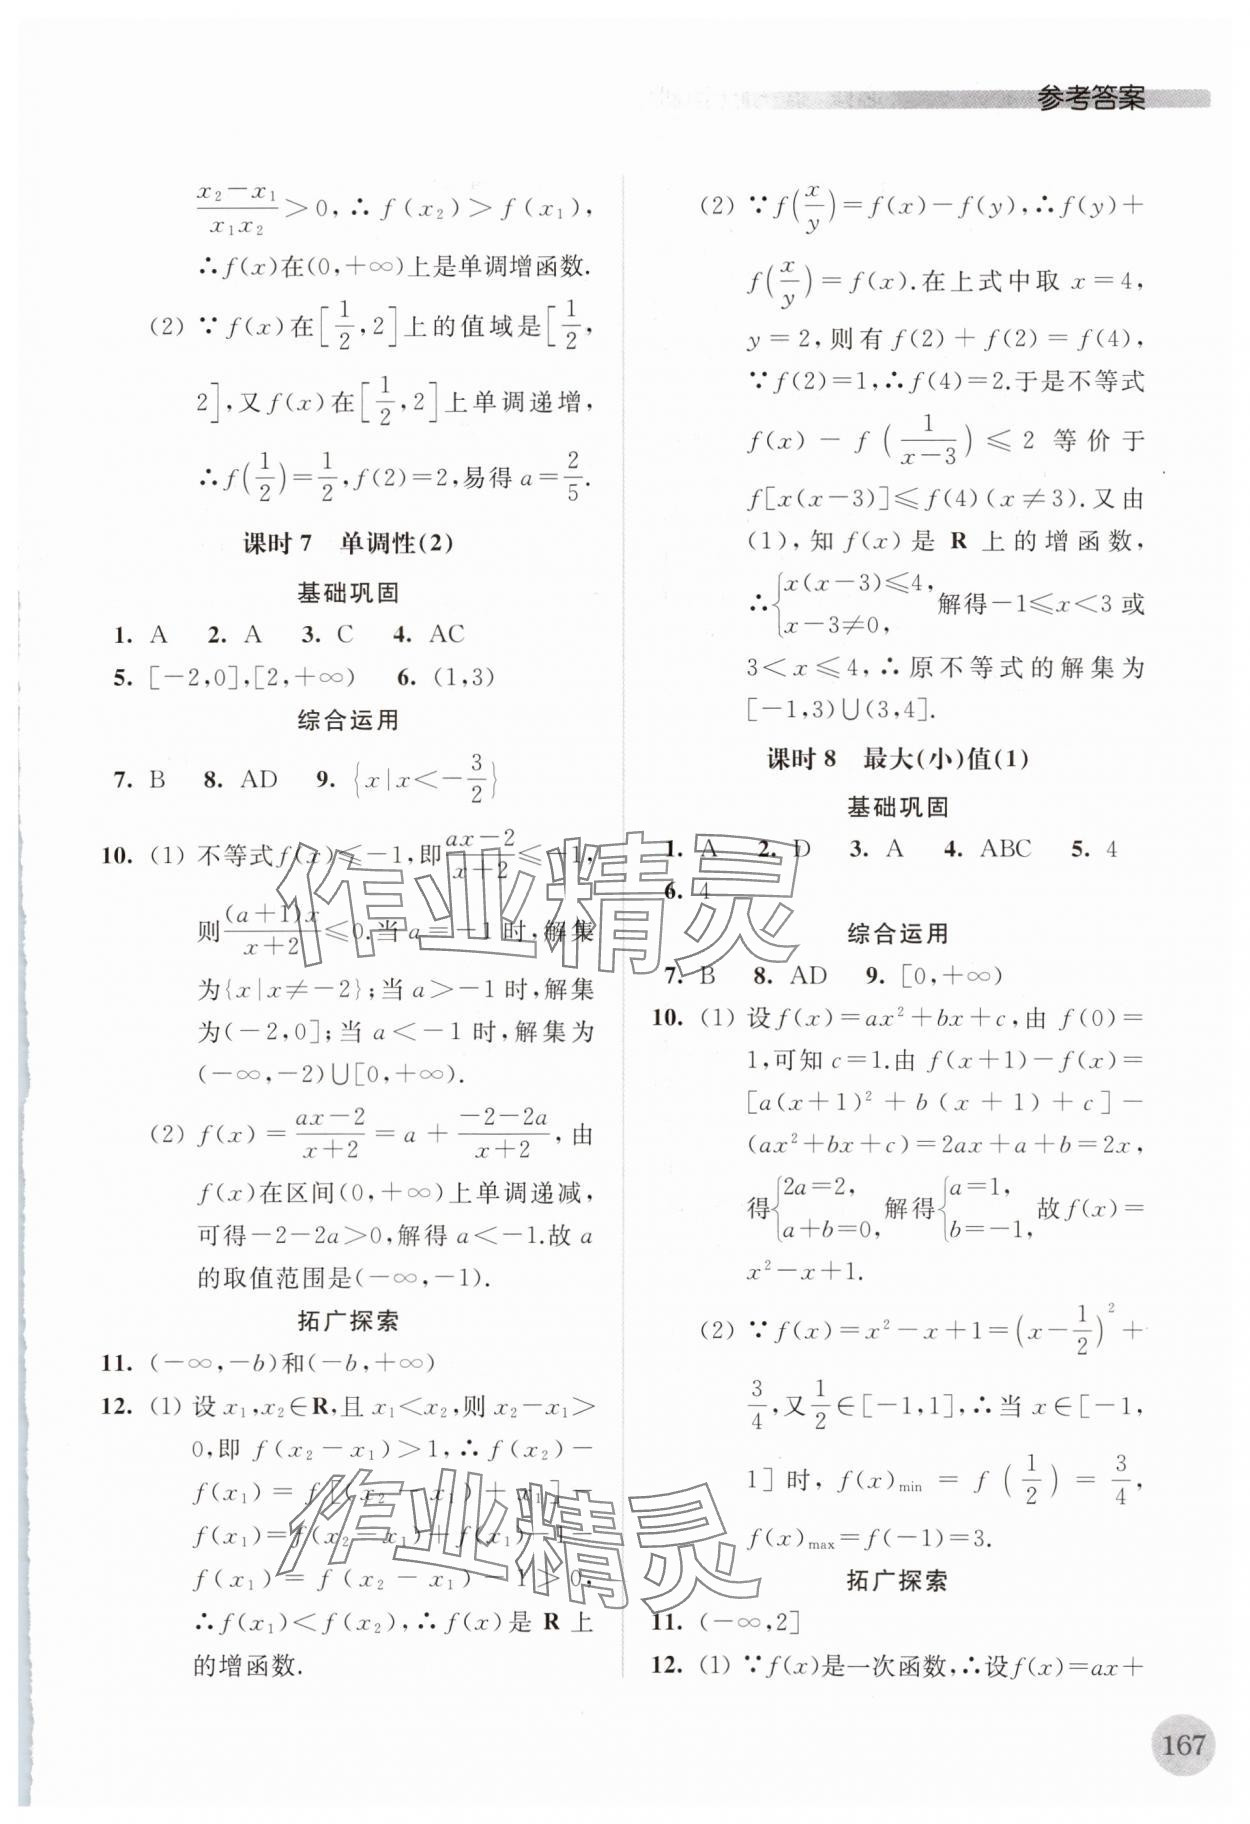 参考答案
\frac{x₂-x₁}{x₁x₂}>0,∴f(x₂)>f(x₁),
∴f(x)在(0,+∞)上是单调增函数.
(2) ∵f(x)在[\frac{1}{2},2]上的值域是[\frac{1}{2},
2],又f(x)在[\frac{1}{2},2]上单调递增,
∴f(\frac{1}{2})=\frac{1}{2},f(2)=2,易得a=\frac{2}{5}.
课时7 单调性(2)
基础巩固
1. A 2. A 3. C 4. AC
5. [-2,0],[2,+∞) 6. (1,3)
综合运用
7. B 8. AD 9. {x|x<-\frac{3}{2}}
10. (1) 不等式f(x)≤-1,即\frac{ax-2}{x+2}≤-1,
则\frac{(a+1)x}{x+2}≤0.当a=-1时,解集
为{x|x≠-2};当a>-1时,解集
为(-2,0];当a<-1时,解集为
(-∞,-2)∪[0,+∞).
(2) f(x)=\frac{ax-2}{x+2}=a+\frac{-2-2a}{x+2},由
f(x)在区间(0,+∞)上单调递减,
可得-2-2a>0,解得a<-1.故a
的取值范围是(-∞,-1).
拓广探索
11. (-∞,-b)和(-b,+∞)
12. (1) 设x₁,x₂∈R,且x₁<x₂,则x₂-x₁>
0,即f(x₂-x₁)>1,∴f(x₂)-
f(x₁)=f[(x₂-x₁)+x₁]-
f(x₁)=f(x₂-x₁)+f(x₁)-1-
f(x₁)=f(x₂-x₁)-1>0,
∴f(x₁)<f(x₂),∴f(x)是R上
的增函数.
(2) ∵f(\frac{x}{y})=f(x)-f(y),∴f(y)+
f(\frac{x}{y})=f(x).在上式中取x=4,
y=2,则有f(2)+f(2)=f(4),
∵f(2)=1,∴f(4)=2.于是不等式
f(x)-f(\frac{1}{x-3})≤2等价于
f[x(x-3)]≤f(4)(x≠3).又由
(1),知f(x)是R上的增函数,
∴{x(x-3)≤4, x-3≠0, 解得-1≤x<3或
3<x≤4,∴原不等式的解集为
[-1,3)∪(3,4].
课时8 最大(小)值(1)
基础巩固
1. A 2. D 3. A 4. ABC 5. 4
6. 4
综合运用
7. B 8. AD 9. [0,+∞)
10. (1) 设f(x)=ax²+bx+c,由f(0)=
1,可知c=1.由f(x+1)-f(x)=
[a(x+1)²+b(x+1)+c]-
(ax²+bx+c)=2ax+a+b=2x,
得{2a=2, a+b=0, 解得{a=1, b=-1, 故f(x)=
x²-x+1.
(2) ∵f(x)=x²-x+1=(x-\frac{1}{2})²+
\frac{3}{4},又\frac{1}{2}∈[-1,1],∴当x∈[-1,
1]时,f(x)min=f(\frac{1}{2})=\frac{3}{4},
f(x)max=f(-1)=3.
拓广探索
11. (-∞,2]
12. (1) ∵f(x)是一次函数,∴设f(x)=ax+
167
作业精灵
作业精灵